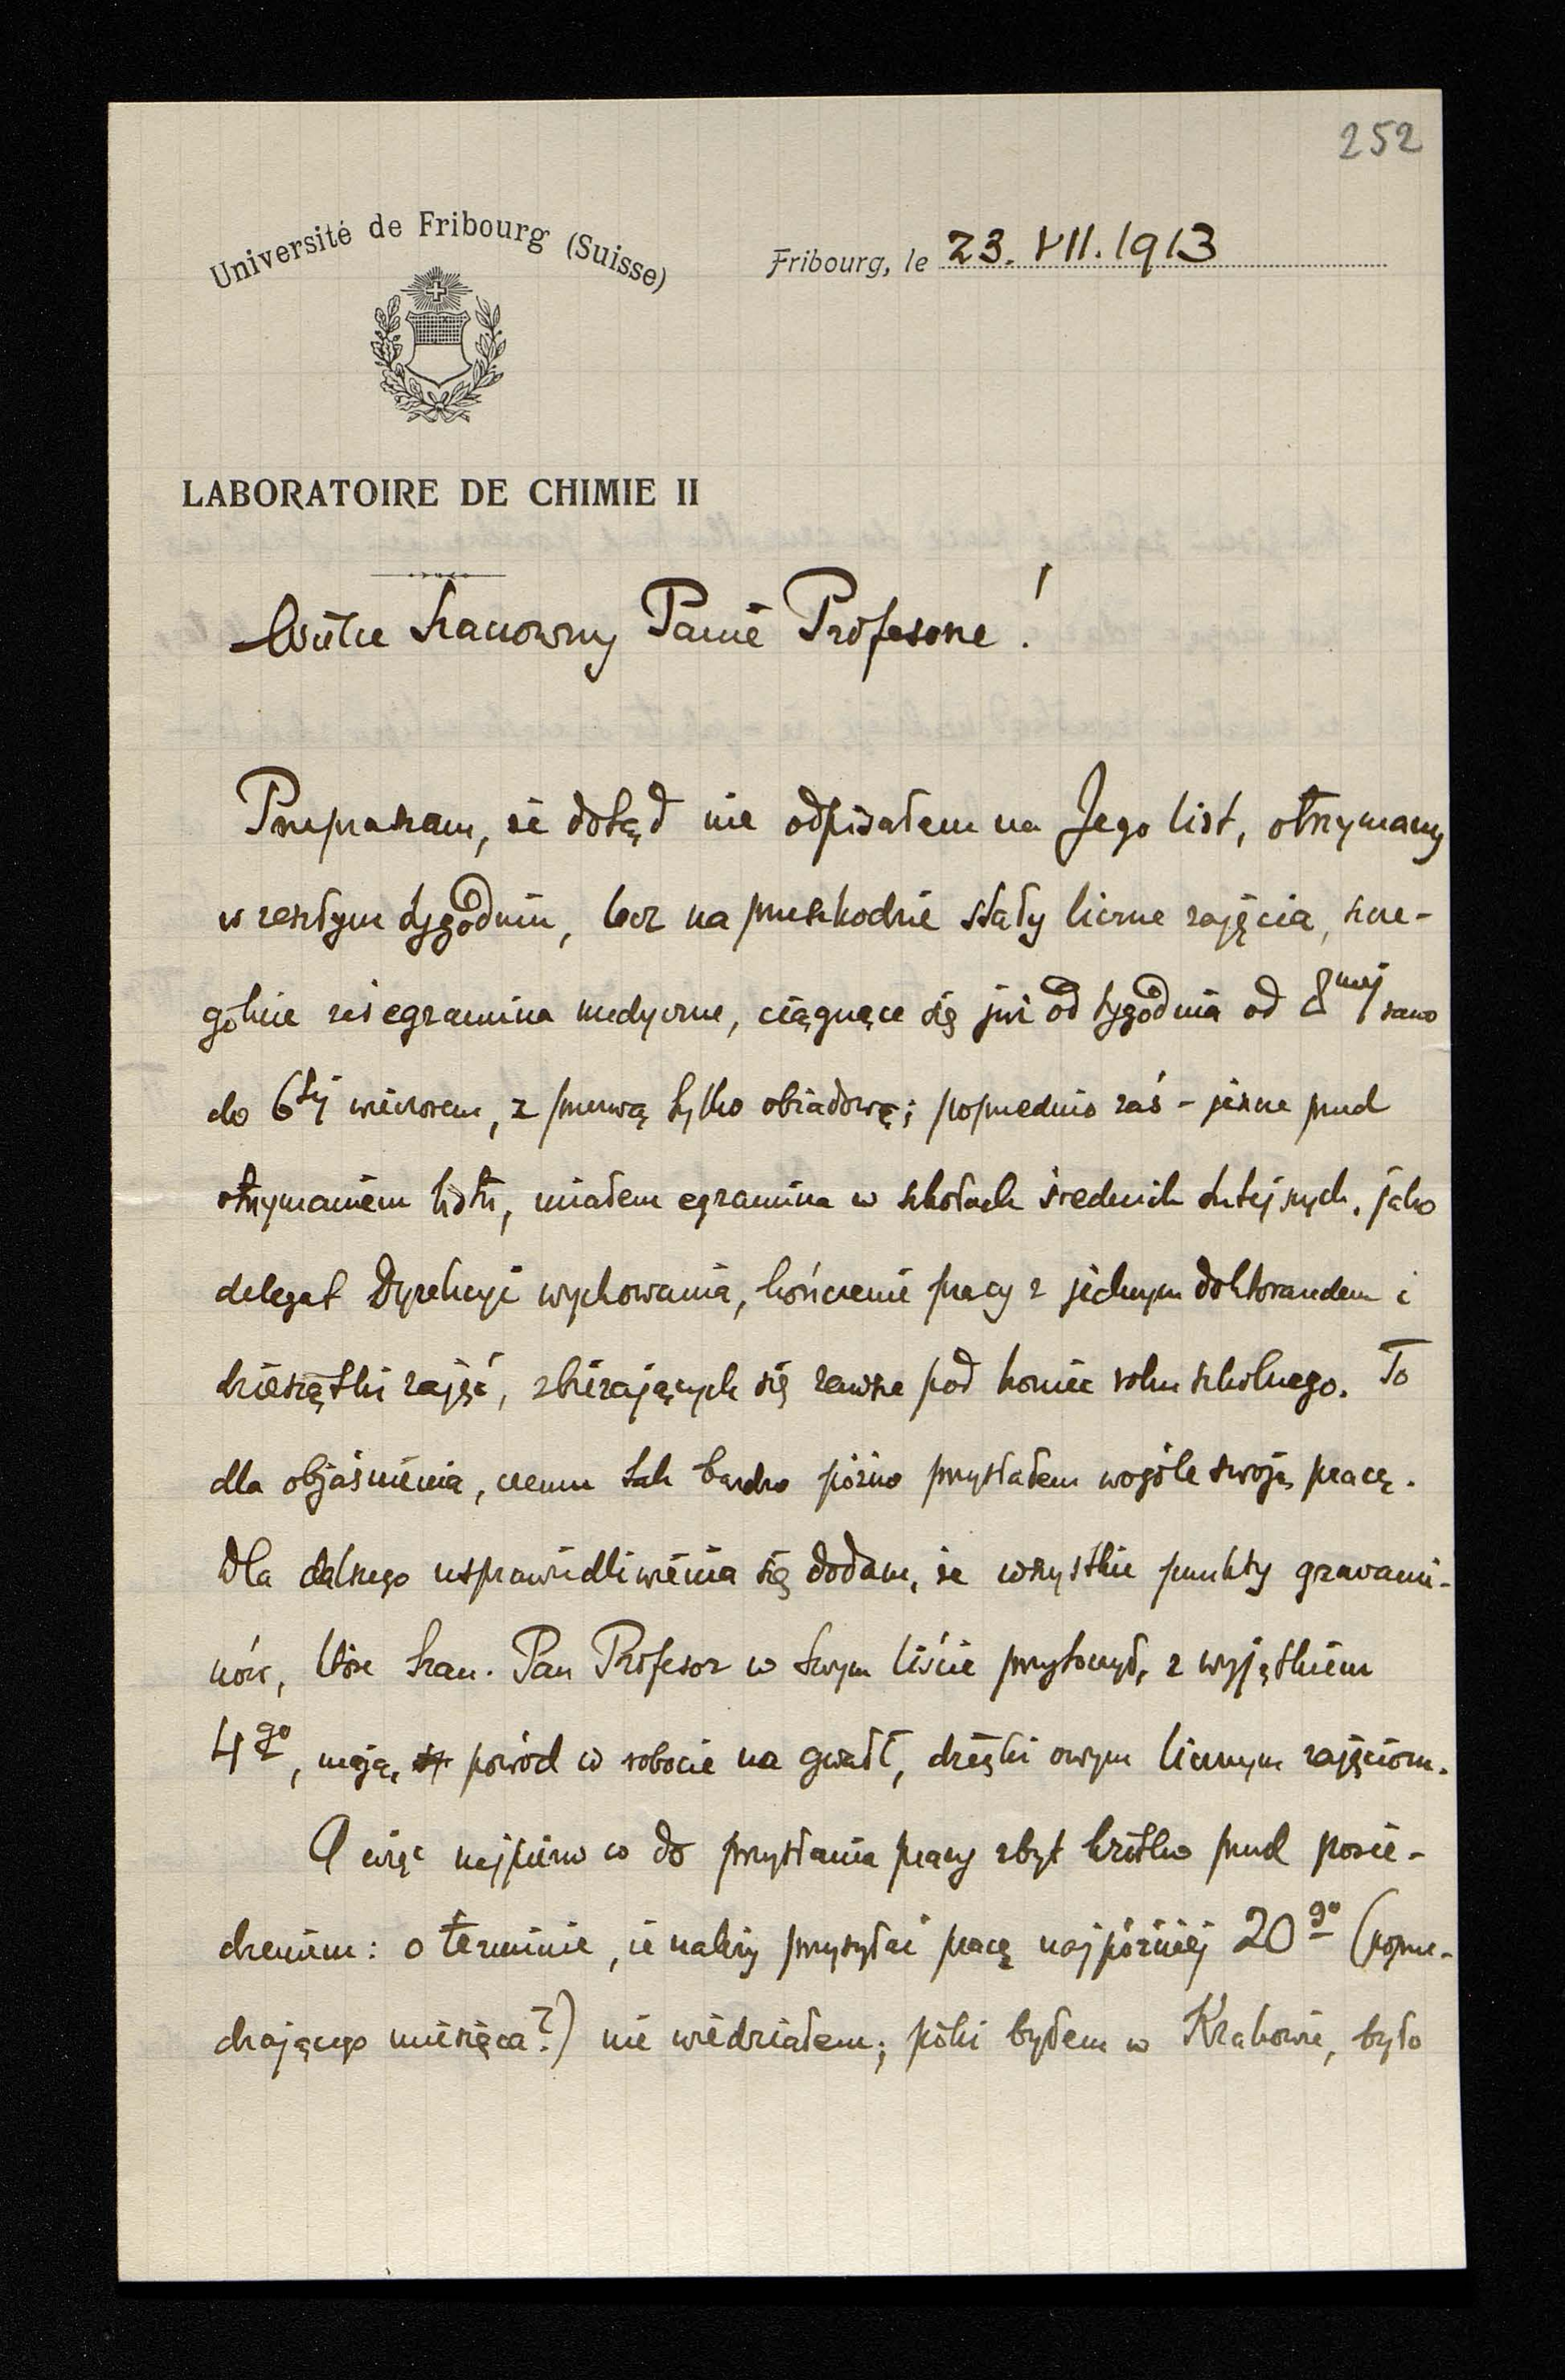 252
Université de Fribourg (Suisse)
Fribourg, le 23. VII. 1913
LABORATOIRE DE CHIMIE II
Wielce Szanowny Panie Profesorze!
Przepraszam, że dotąd nie odpisałem na Jego list, otrzymany
w zeszłym tygodniu, lecz na przeszkodzie stały liczne zajęcia, szcze-
gólnie zaś egzamina medyczne, ciągnące się już od tygodnia od 8mej rano
do 6tej wieczorem, z przerwą tylko obiadową; poprzednio zaś - jeszcze przed
otrzymaniem listu, miałem egzamina w szkołach średnich tutejszych, jako
delegat Dyrekcyi wychowania, kończenie pracy z jednym doktorandem i
dziesiątki zajęć, zbierających się zawsze pod koniec roku szkolnego. To
dla objaśnienia, czemu tak bardzo późno przysłałem wogóle swoją pracę.
Dla dalszego usprawiedliwienia się dodam, że wszystkie punkty gravami-
nów, które Szan. Pan Profesor w swym liście przytoczył, z wyjątkiem
4go, mają powód w robocie na gwałt, dzięki owym licznym zajęciom.
A więc najpierw co do przysłania pracy zbyt krótko przed posie-
dzeniem: o terminie, że należy przysyłać pracę najpóźniej 20go (poprze-
dzającego miesiąca?) nie wiedziałem; póki byłem w Krakowie, było